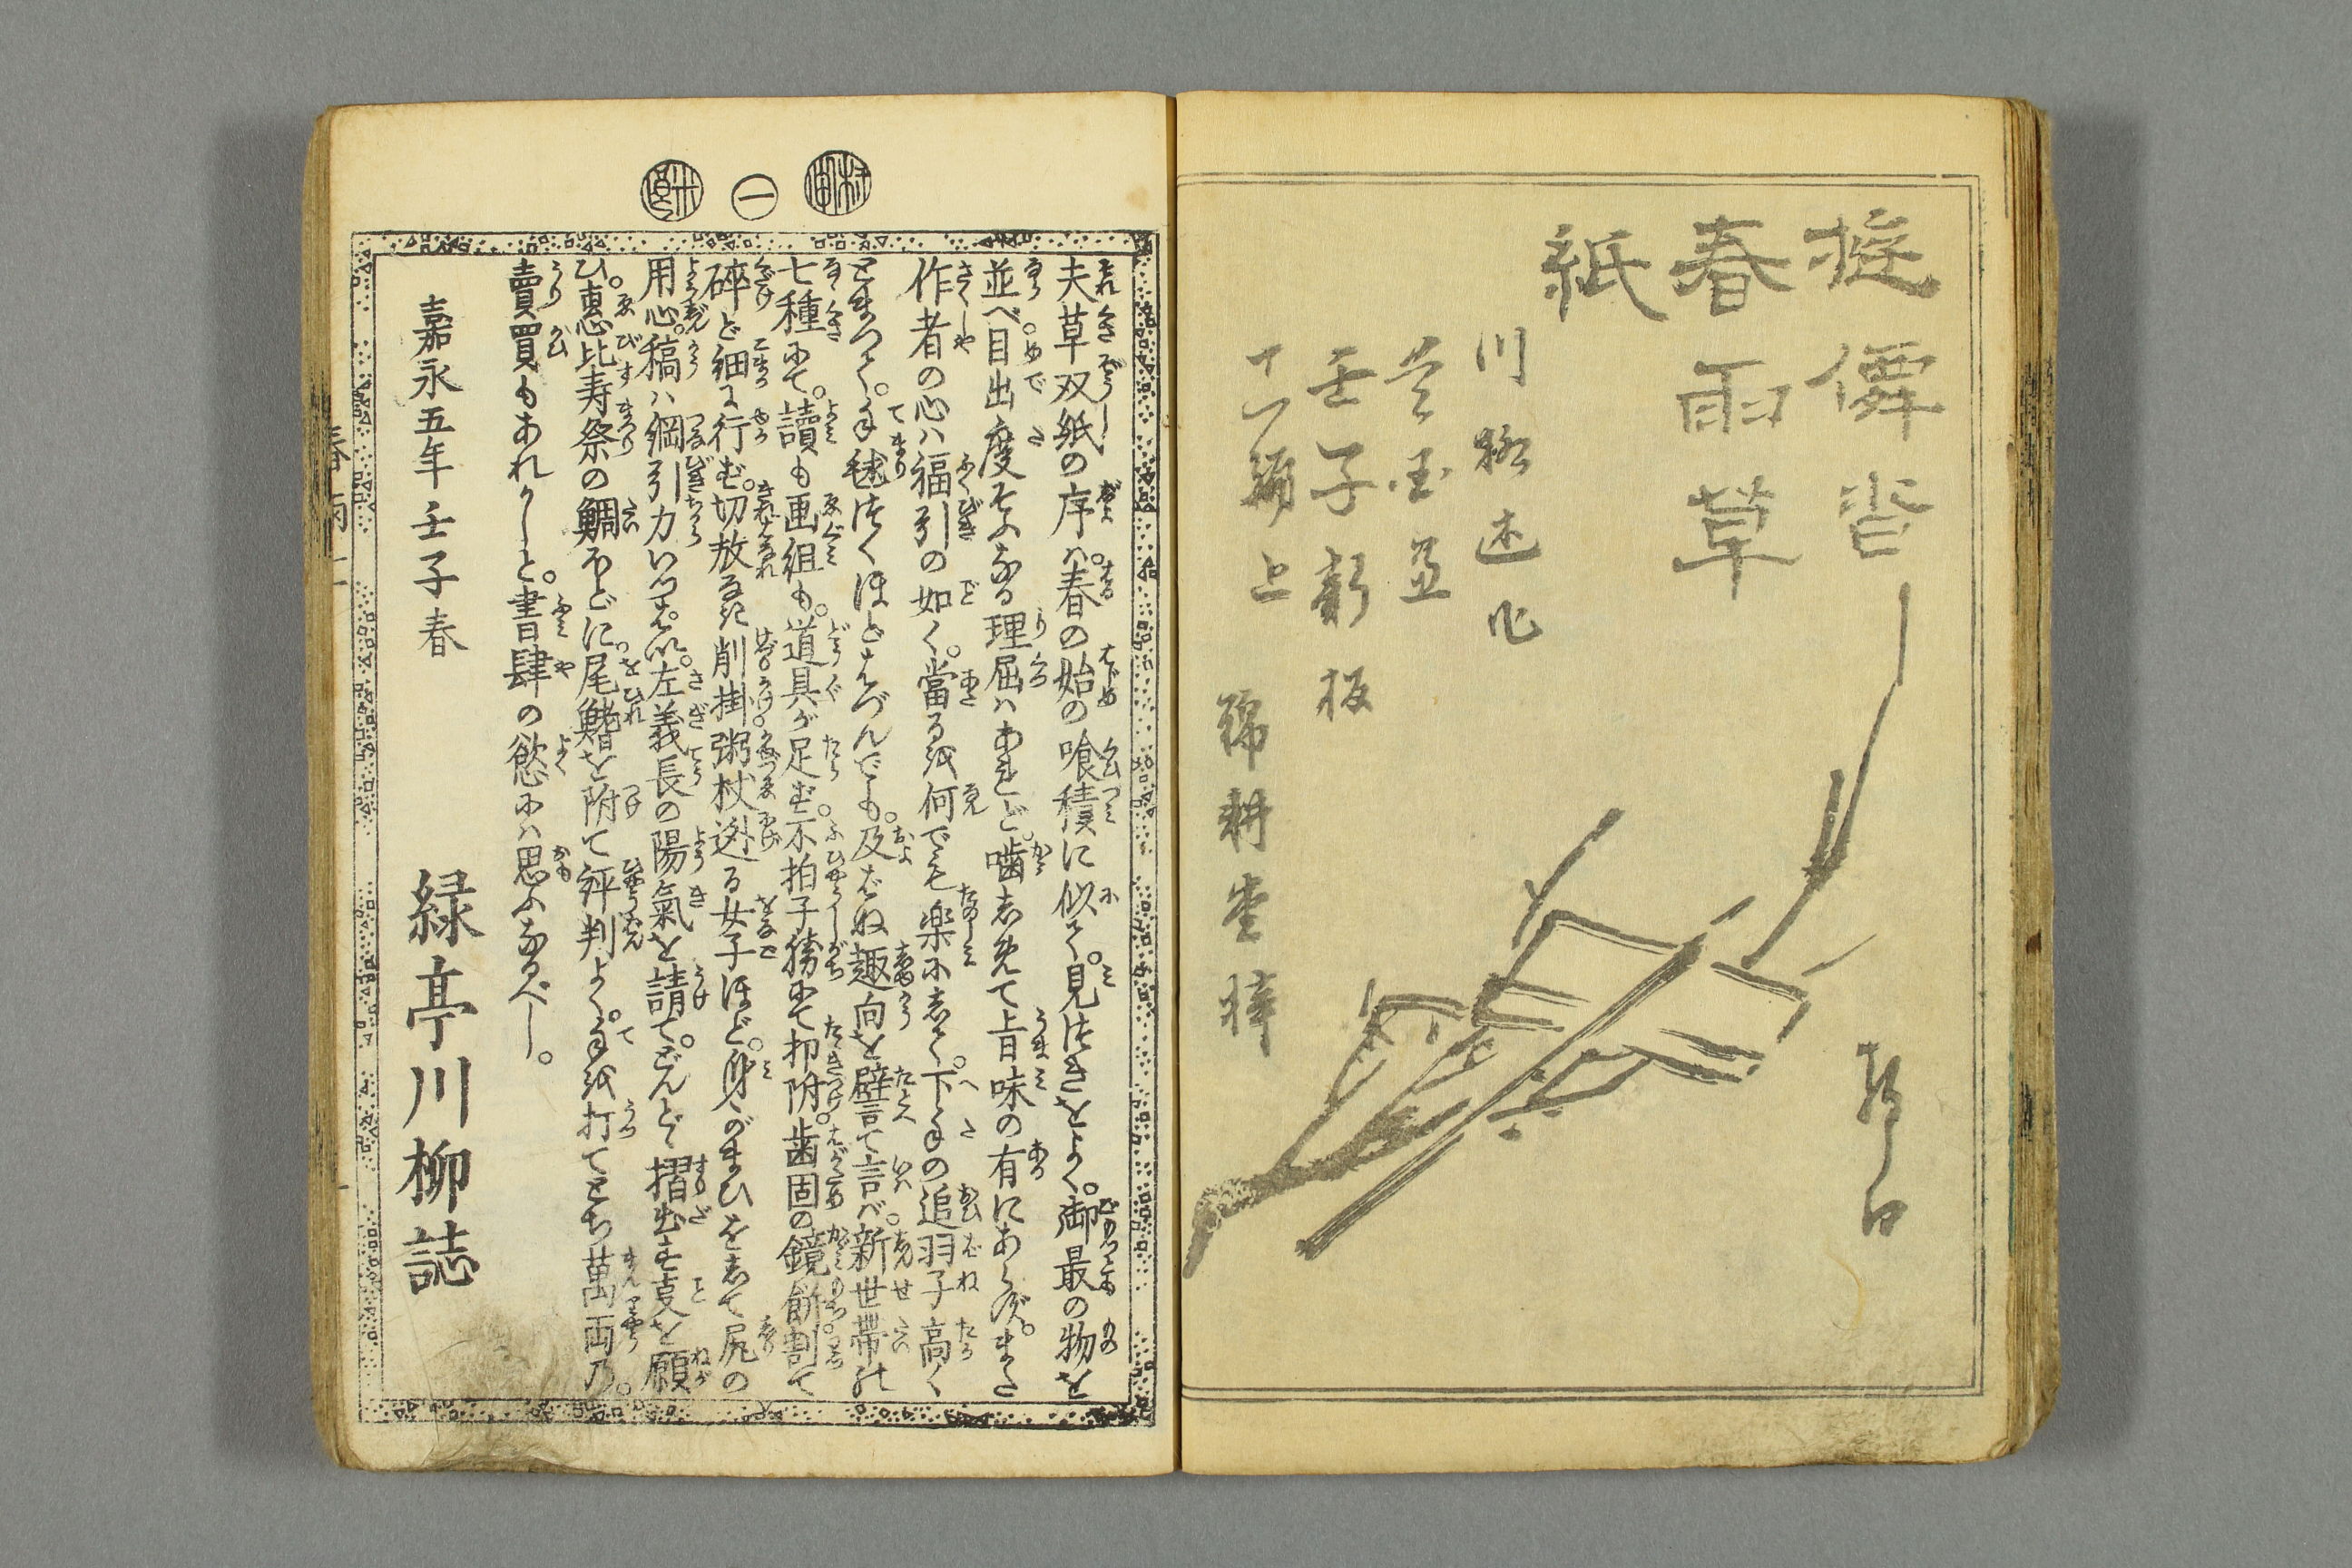 春雨草
紙
川柳述作
芳国画
壬子新板
十一編上
錦耕堂梓
一
夫草双紙の序は。春の始の喰積に似て。見つきをよく。御最の物を
並べ。目出度そふなる理屈ハあれど。噛しめて旨味の有にあらず。また
作者の心ハ福引の如く。當るを何でも楽にして。下手の追羽子高く
とまつて。手毬つくほどはづんでも。及ばぬ趣向を譬て言ば。新世帯の
七種にて。讀も画組も。道具が足ず。不拍子勝にて叩附。歯固の鏡餅割て
碎ど細に行ず。切放なれ削掛。粥杖迯る女子ほど。身がまひをして尻の
用心。稿ハ綱引力いつぱい。左義長の陽氣を請て。どんど摺出す事を願
ひ。恵比寿祭の鯛ほどに。尾鰭を附て評判よく。手を打てとち萬両乃。
賣買もあれかしと。書肆の慾にハ思ふなるべし。
嘉永五年壬子春
緑亭川柳誌